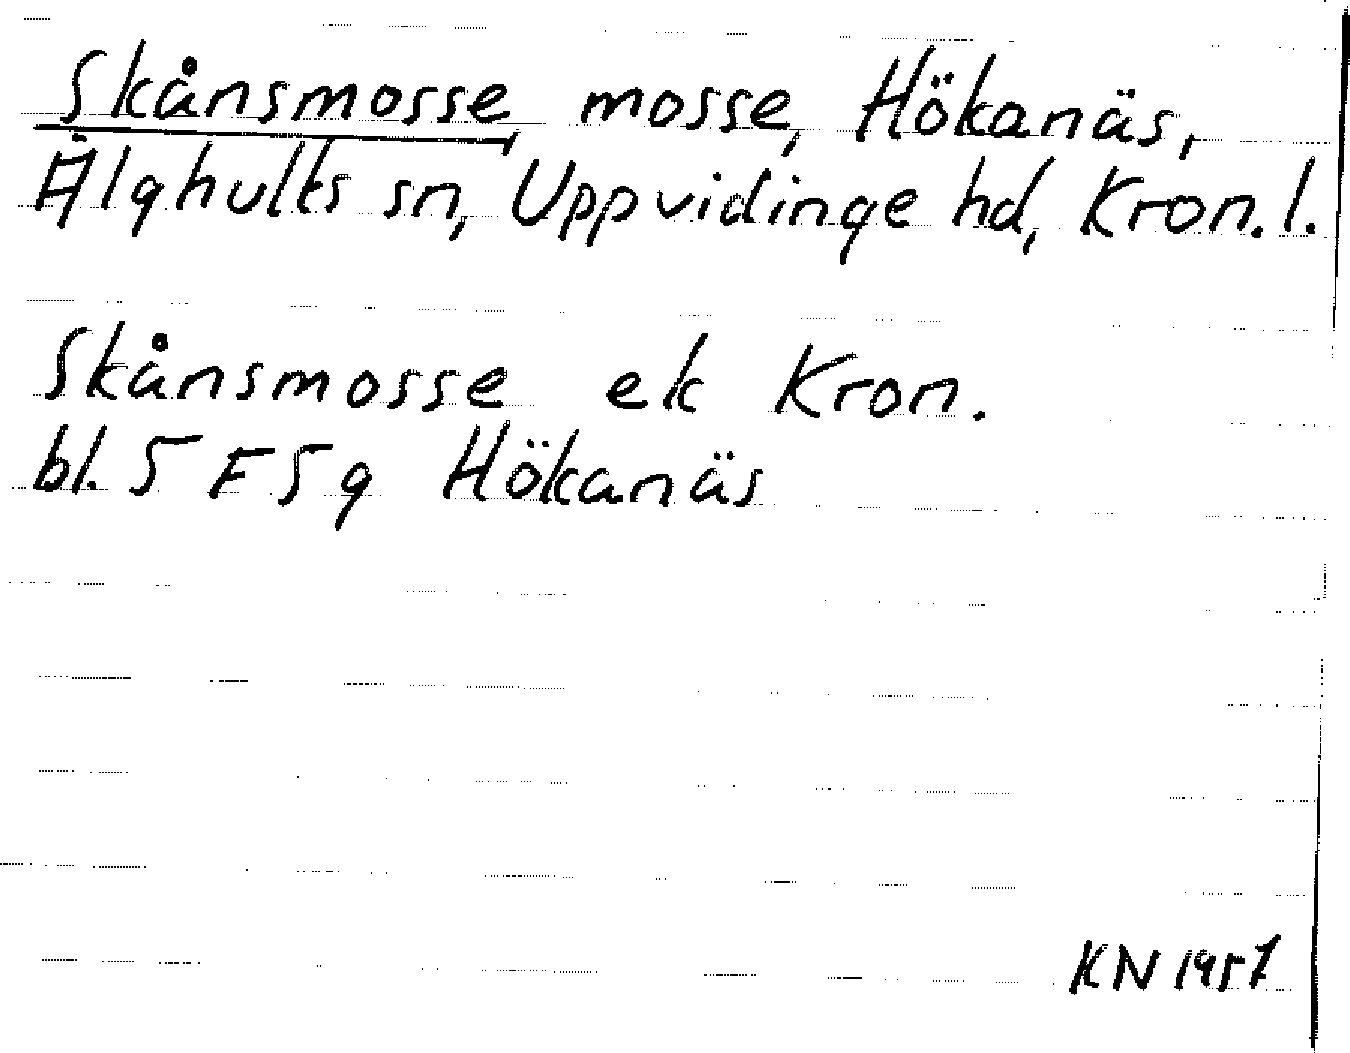 Skånsmosse mosse, Hökanäs,
Älghults sn, Uppvidinge hd, Kron. l.
Skånsmosse ek Kron.
bl. 5 F 5 g Hökanäs
KN 1957